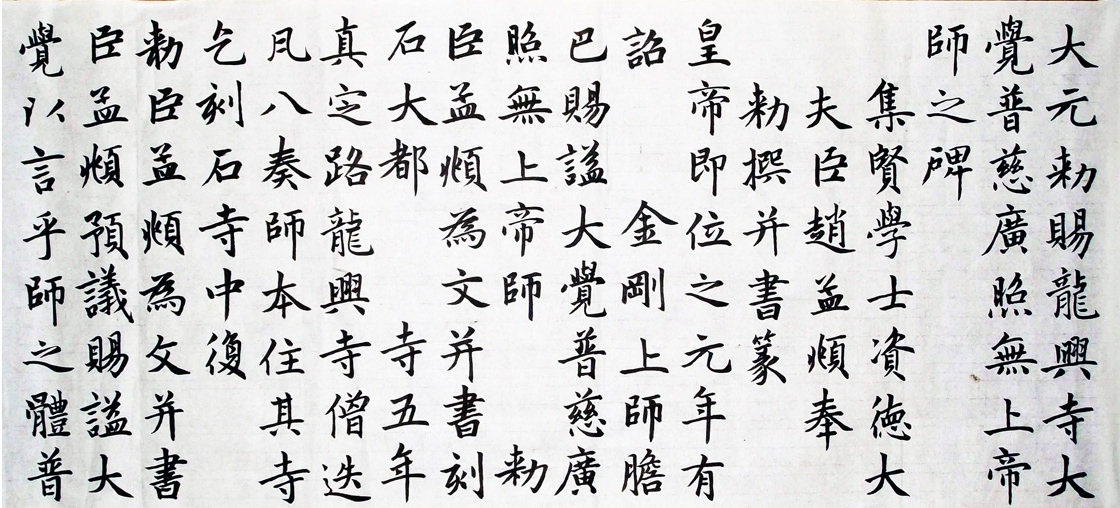 大元勅賜龍興寺大
覺普慈廣照無上帝
師之碑
集賢學士資德大
夫臣趙孟頫奉
勅撰并書篆
皇帝即位之元年有
詔 金剛上師膽
巴賜謚大覺普慈廣
照無上帝師 勅
臣孟頫為文并書刻
石大都 寺五年
真定路龍興寺僧迭
凡八奏師本住其寺
乞刻石寺中復
勅臣孟頫為文并書
臣孟頫預議賜謚大
覺以言乎師之體普